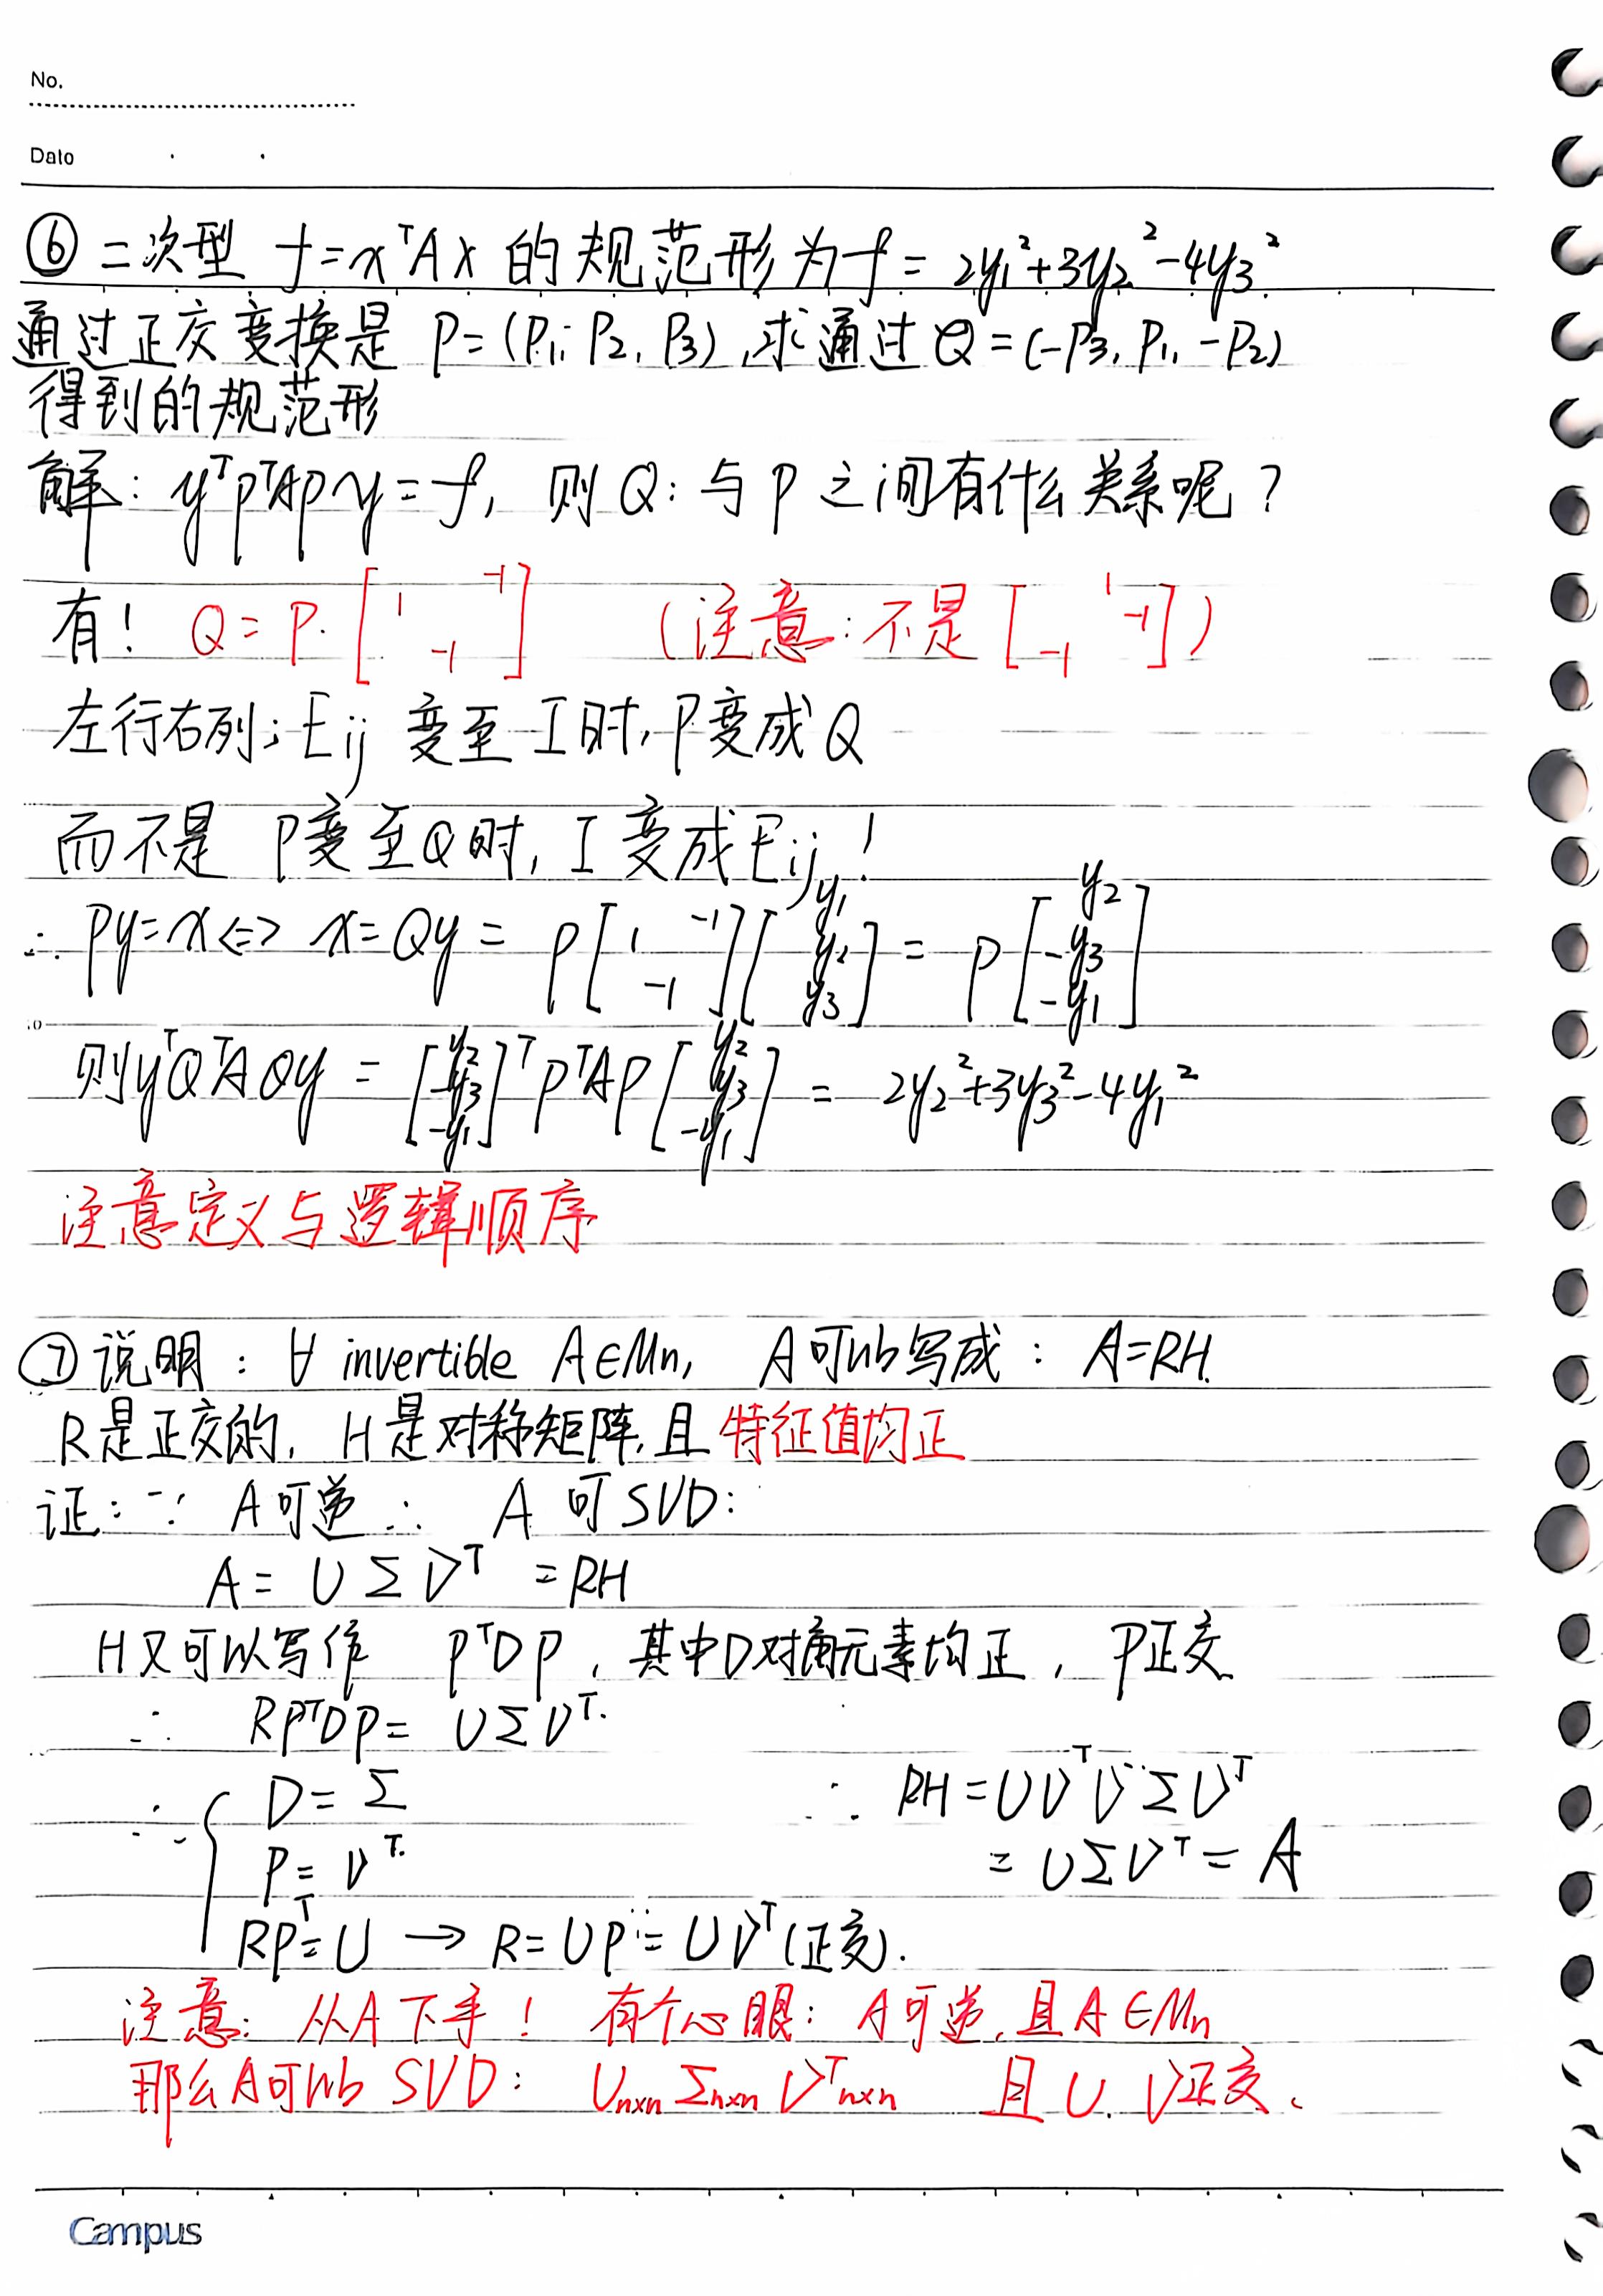 No.
Date
⑥ 二次型 f=xᵀAx 的规范形为 f = 2y₁²+3y₂²-4y₃²
通过正交变换是 P=(P₁, P₂, P₃),求通过 Q=(-P₃, P₁, -P₂)
得到的规范形
解: yᵀPᵀAPy=f, 则Q: 与P之间有什么关系呢?
有! Q = P·[ 1 -1 -1 ] (注意: 不是 [ 1 -1 -1 ])
左行右列; Eij 变至 I时, P变成Q
而不是 P变至Q时, I 变成Eij!
∴ Py=x ⇔ x=Qy = P[ 1 -1 -1 ][ y₁ y₂ y₃ ] = P[ y₂ -y₃ -y₁ ]
则yᵀQᵀAQy = [ y₂ -y₃ -y₁ ]ᵀPᵀAP[ y₂ y₃ -y₁ ] = 2y₂²+3y₃²-4y₁²
注意定义与逻辑顺序
⑦ 说明: ∀ invertible A∈Mn, A可以写成: A=RH.
R是正交的, H是对称矩阵,且特征值均正
证: ∵ A可逆 ∴ A 可SVD:
A = U Σ Vᵀ = RH
H又可以写作 PᵀDP, 其中D对角元素均正, P正交
∴ RPᵀDP = UΣVᵀ.
∴ { D = Σ
P = Vᵀ.
RPᵀ=U → R=UP = UVᵀ(正交).
∴ RH = UVᵀVΣVᵀ
= UΣVᵀ = A
注意: 从A下手! 有个心眼: A可逆,且A∈Mn
那么A可以 SVD: Uₙₓₙ Σₙₓₙ Vᵀₙₓₙ 且 U, V正交.
Campus